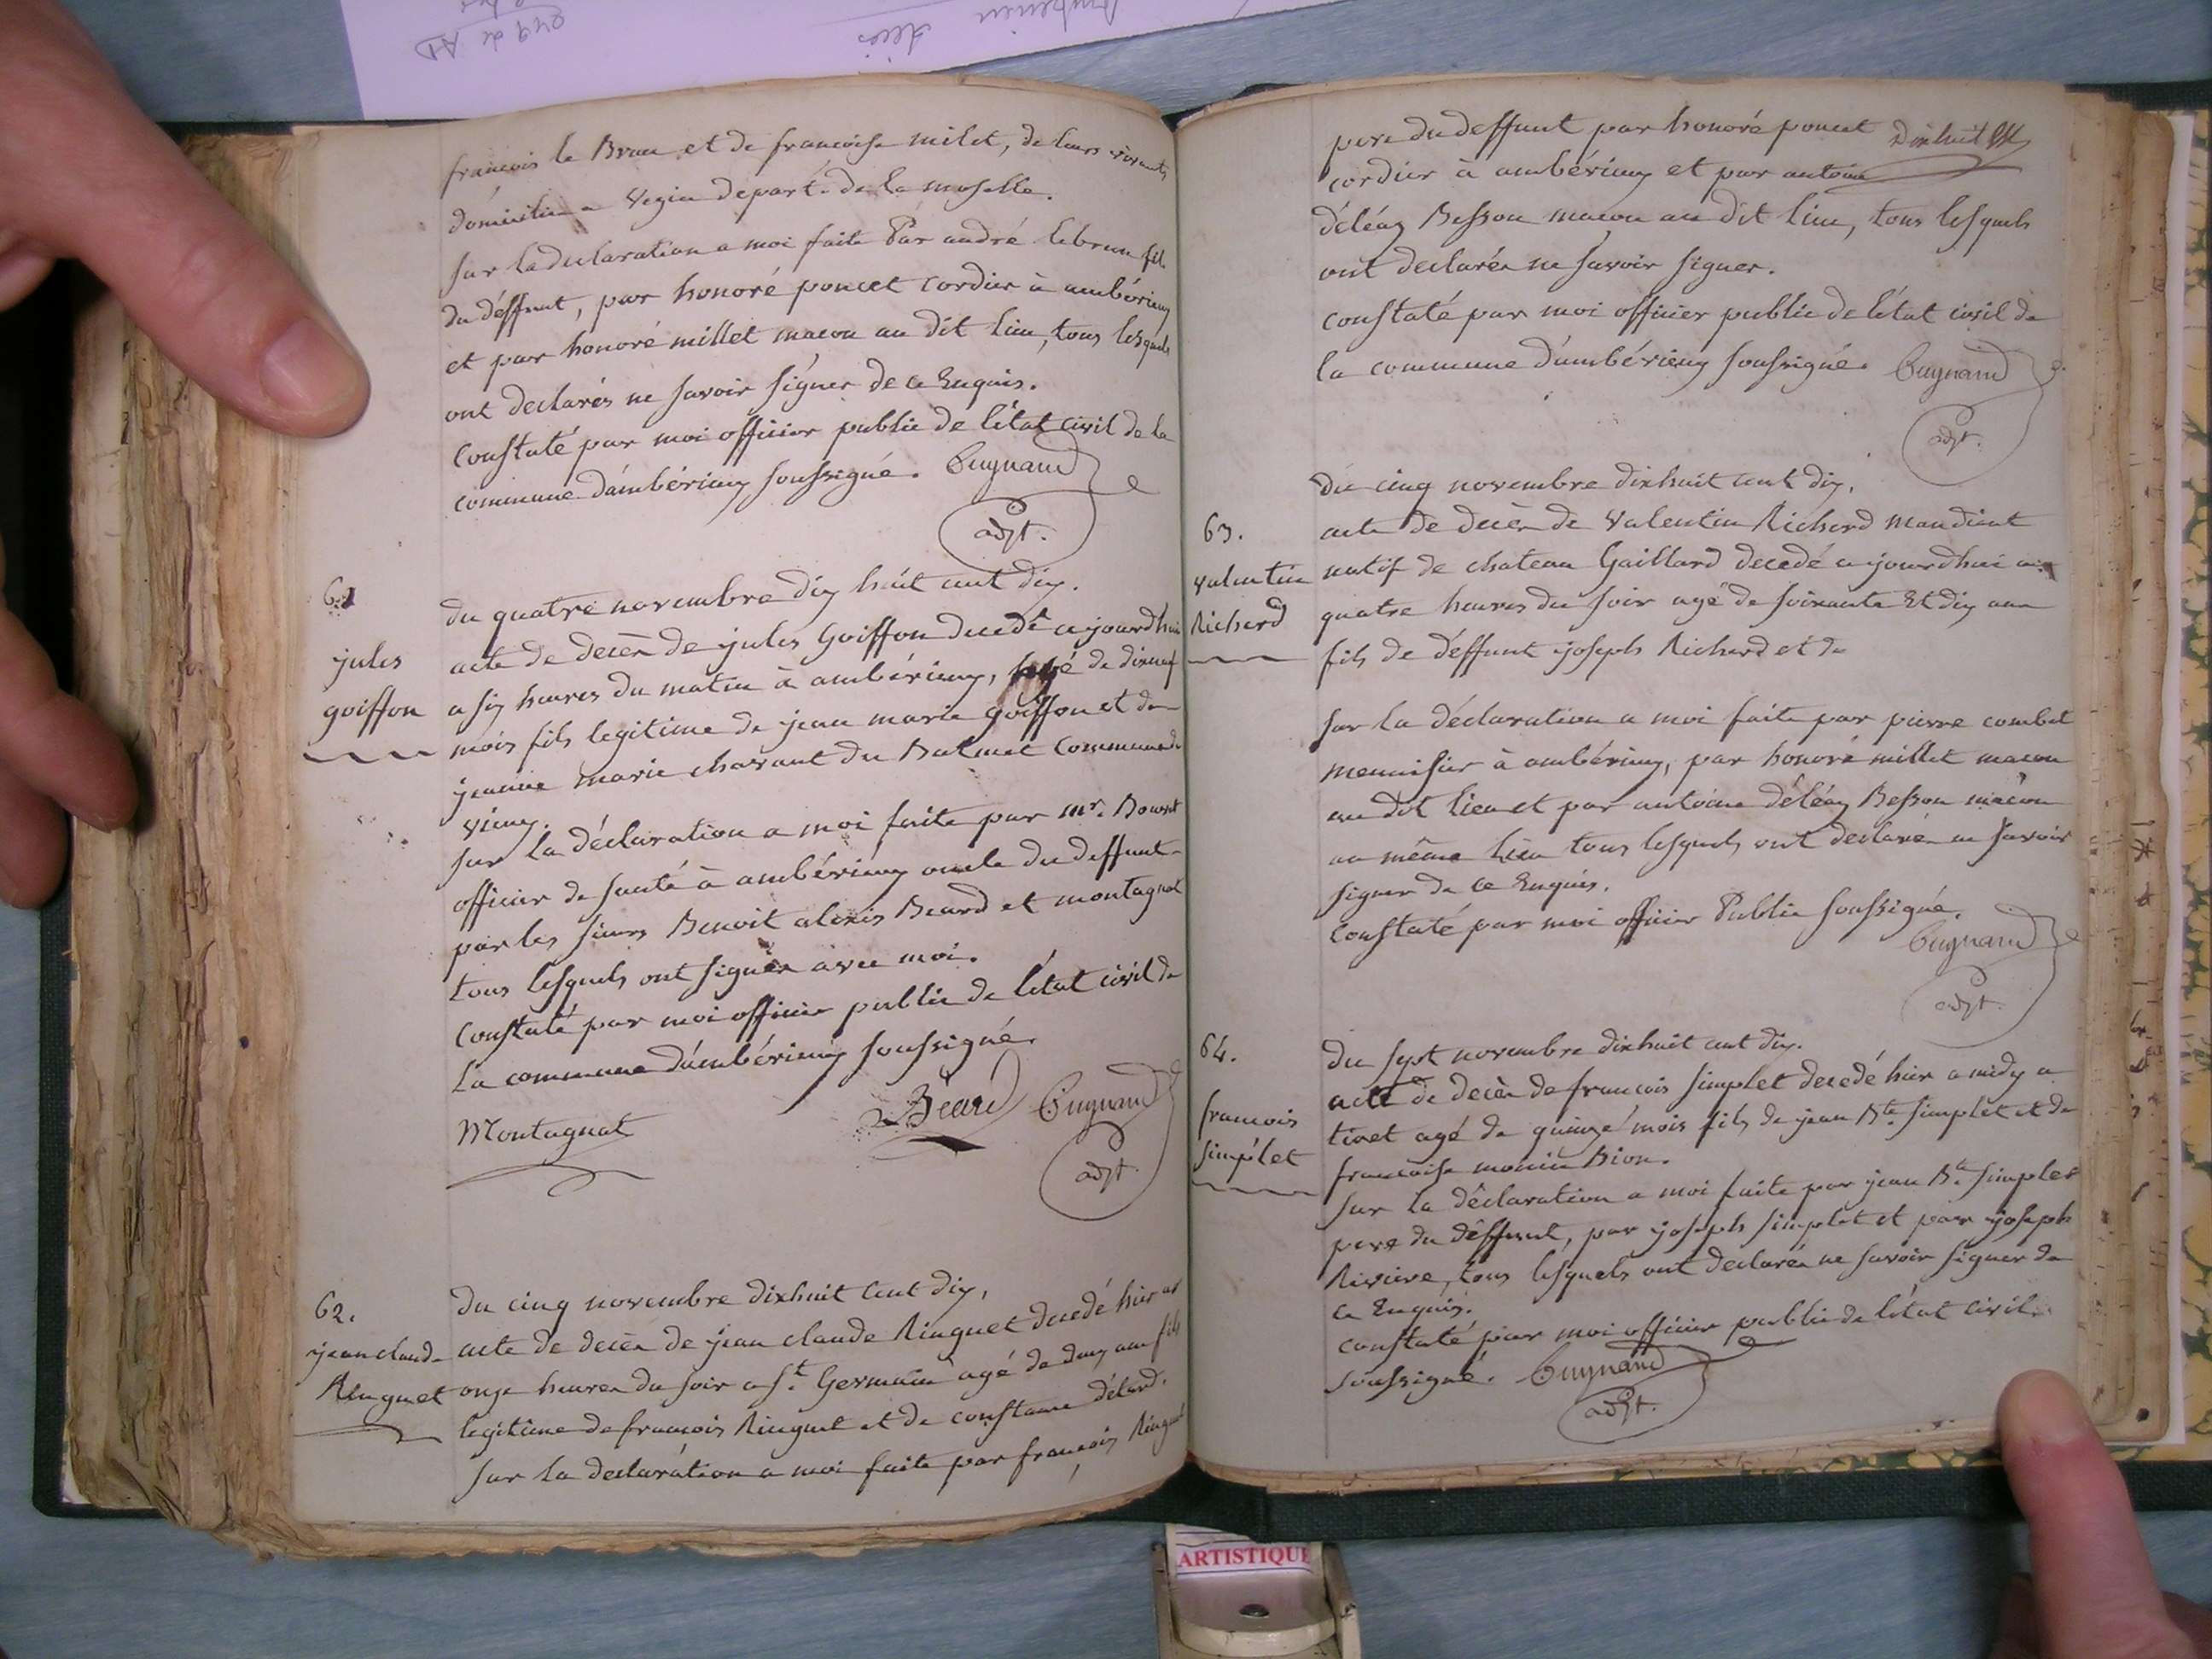 françois le Brun et de françoise milet, de leurs vivants
domicilies a Vegia depart. de la moselle.
sur la declaration a moi faite Par andré lebrun fils
du déffunt, par honoré poncet cordier à ambérieux
et par honoré millet macon au dit lieu, tous lesquels
ont declarés ne savoir signer de ce Enquis.
Constaté par moi officier public de l'état civil de la
commune d'ambérieux soussigné. Cugnand
adjt.
61
jules
goiffon
du quatre novembre dix huit cent dix.
acte de decès de jules Goiffon decedé aujourd'hui
a six heures du matin à ambérieux, agé de dixneuf
mois fils legitime de jean marie goiffon et de
jeanne marie chavant du Balmet Commune de
vieux.
sur la déclaration a moi faite par mr. Bouvet
officier de santé à ambérieux oncle du deffunt
par les sieurs Benoit alexis Beard et montagnat
tous lesquels ont signés avec moi.
Constaté par moi officier public de l'état civil de
La commune d'ambérieux soussigné.
Montagnat Beard Cugnand
adjt.
62.
jean claude
Ringuet
du cinq novembre dixhuit Cent dix,
acte de decès de jean claude Ringuet decedé hier a
onze heures du soir a St. Germain agé de deux ans fils
legitime de françois Ringuet et de constance délard.
sur la declaration a moi faite par françois Ringuet
pere du deffunt par honoré poncet
cordier à ambérieux et par antoine
déléaz Besson macon au dit lieu, tous lesquels
ont declarés ne savoir signer.
constaté par moi officier public de l'état civil de
la commune d'ambérieux soussigné. Cugnand
adjt.
63.
valentin
Richard
du cinq novembre dixhuit cent dix.
acte de decès de Valentin Richard mandiant
natif de chateau Gaillard decedé aujourdhui a
quatre heures du soir agé de soixante Et dix ans
fils de déffunt joseph Richard et de
sur la déclaration a moi faite par pierre combet
menuisier à ambérieux, par honoré millet macon
au dit lieu et par antoine déléaz Besson macon
au même lieu tous lesquels ont declarés ne savoir
signer de ce Enquis.
Constaté par moi officier Public soussigné.
Cugnand
adjt.
64.
francois
simplet
du sept novembre dixhuit cent dix.
acte de decès de françois simplet decedé hier a midy a
tiret agé de quinze mois fils de jean Bte. simplet et de
françoise monin Bion.
sur la déclaration a moi faite par jean Bte. simplet
pere du déffunt, par joseph simplet et par joseph
Riviere, tous lesquels ont declarés ne savoir signer de
ce Enquis.
constaté par moi officier public de l'état civil
soussigné. Cugnand
adjt.
ARTISTIQUE